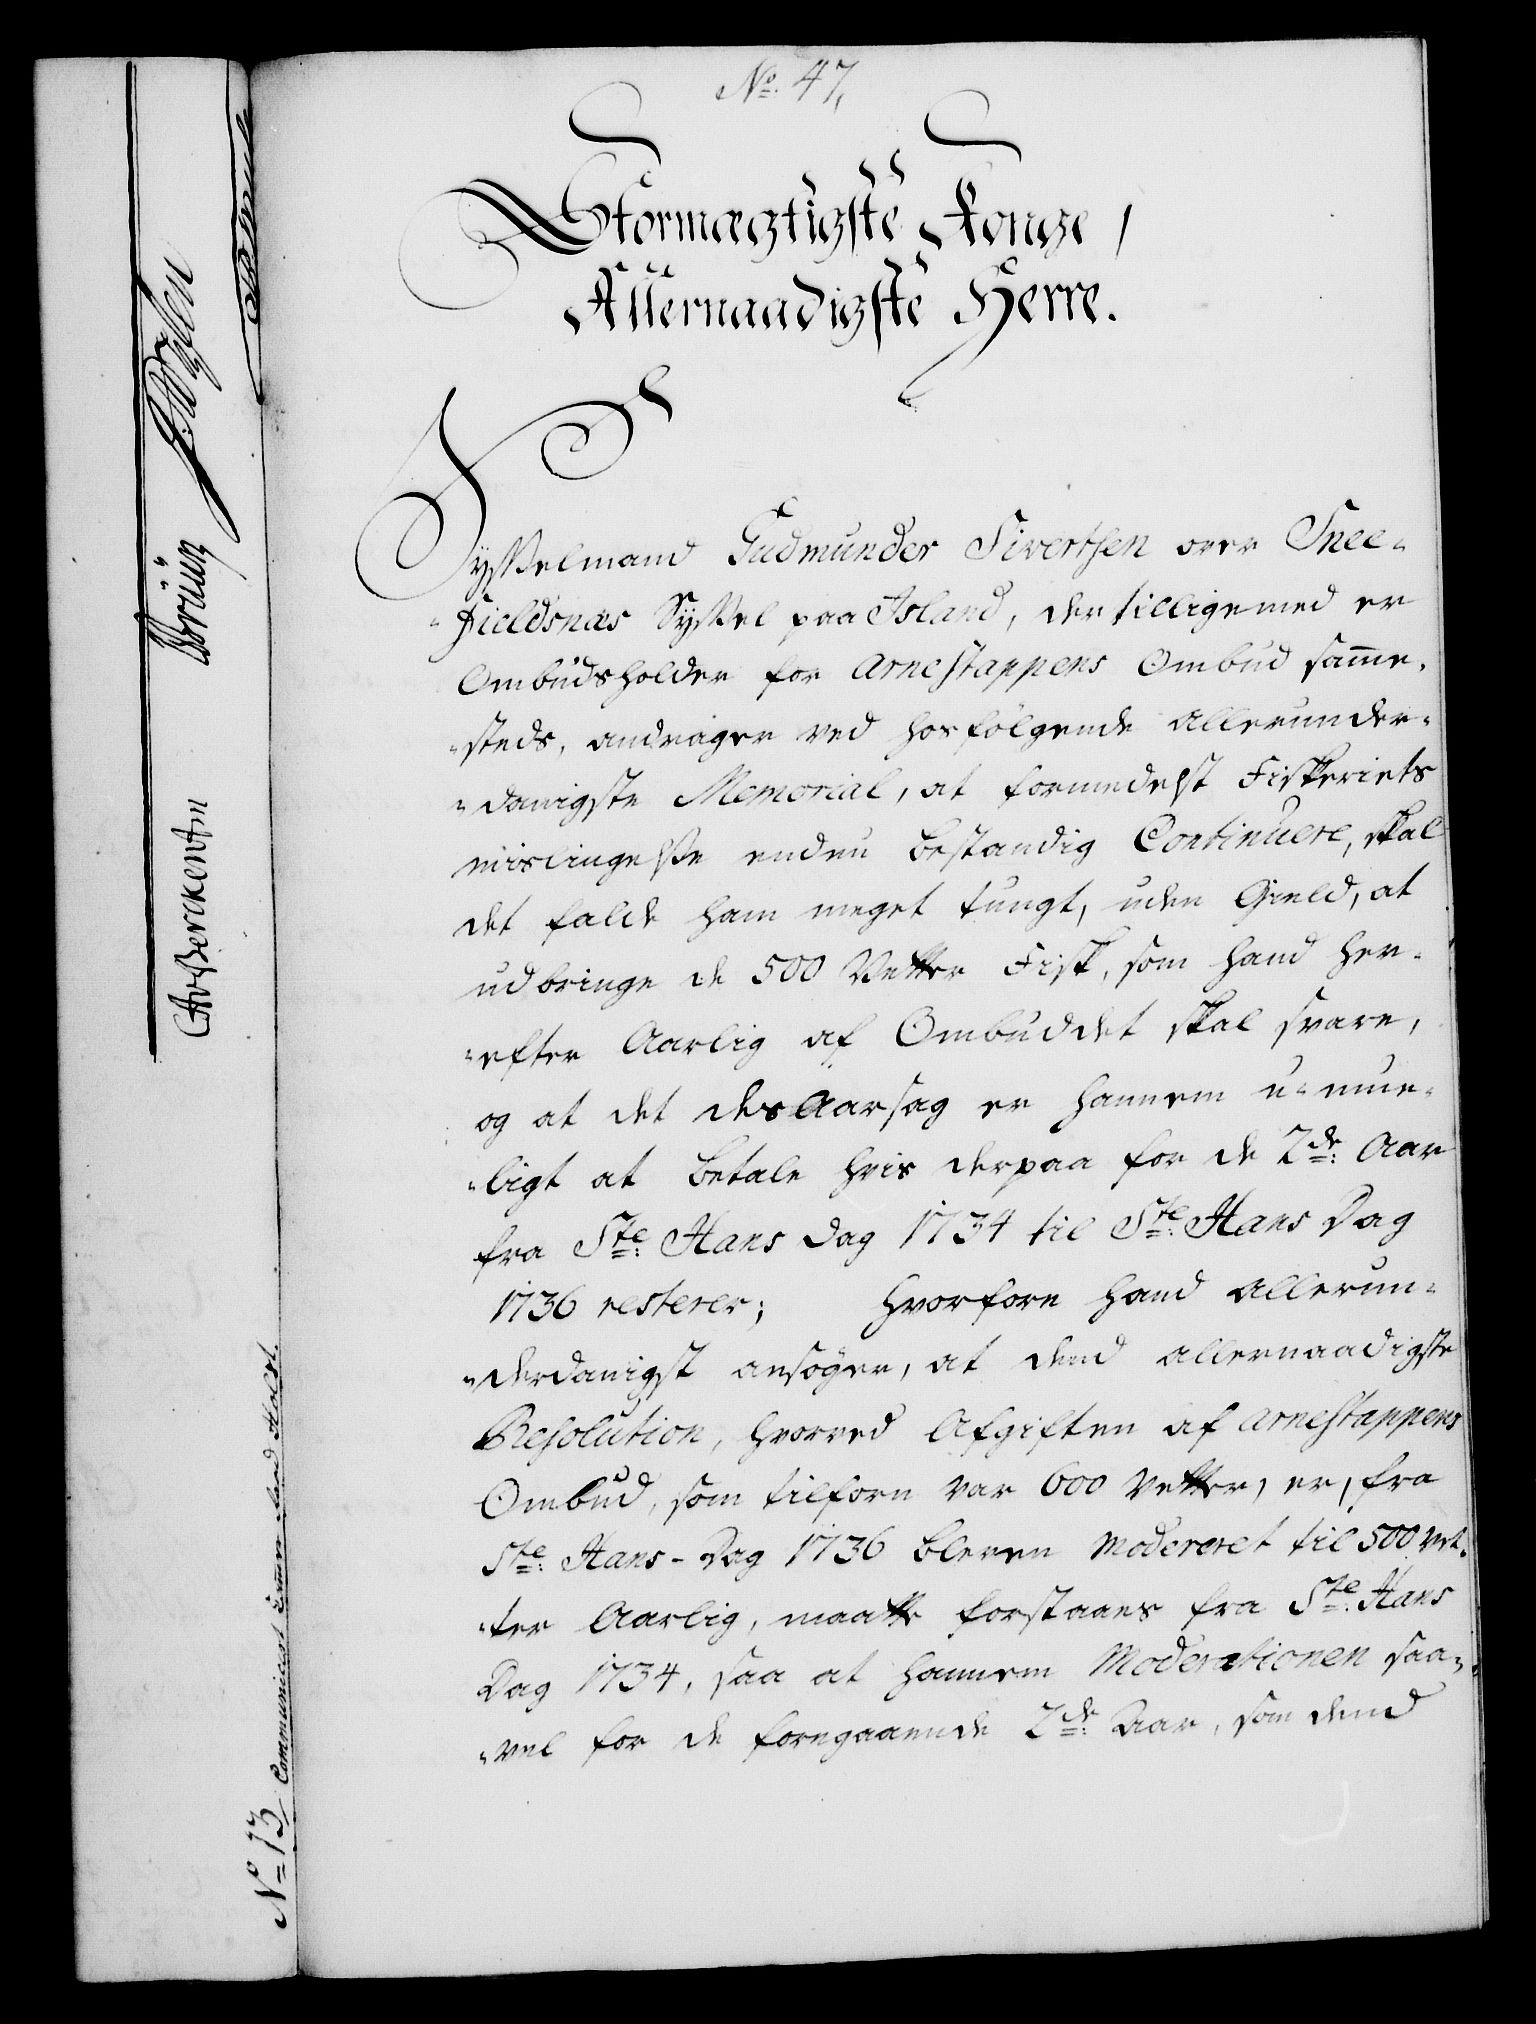 No. 47,
Stormægtigste Konge,
Allernaadigste Herre.
Sysselmand Gudmunder Sivertsen over Snee-
-fieldsnæs Syssel paa Island, der tillige med er
Ombudsholder for Arnestappens Ombud samme-
-steds, andrager ved hosfølgende allerunder-
-danigste Memorial, at formedelst Fiskeriets
mislingelse endnu bestandig Continuere, skal
det falde ham meget tungt, uden Gield, at
udbringe de 500 Vetter Fisk, som hand her-
-efter Aarlig af Ombuddet skal svare,
og at det desAarsag er hannem u-mue-
-ligt at betale hvis derpaa for de 2de: Aar
fra Ste: Hans Dag 1734 til Ste: Hans Dag
1736 resterer; hvorfore hand allerun-
-derdanigst ansøger, at dend allernaadigste
Resolution, hvorved Afgiften af Arnestappens
Ombud, som tilforn var 600 Vetter, er, fra
Ste: Hans-Dag 1736 bleven Modereret til 500 Vet-
-ter Aarlig, maatte forstaaes fra Ste: Hans
Dag 1734, saa at hannem Moderationen saa-
-vel for de foregaaende 2de: Aar, som dend
No 13, Communicert Etats Raad Holst.